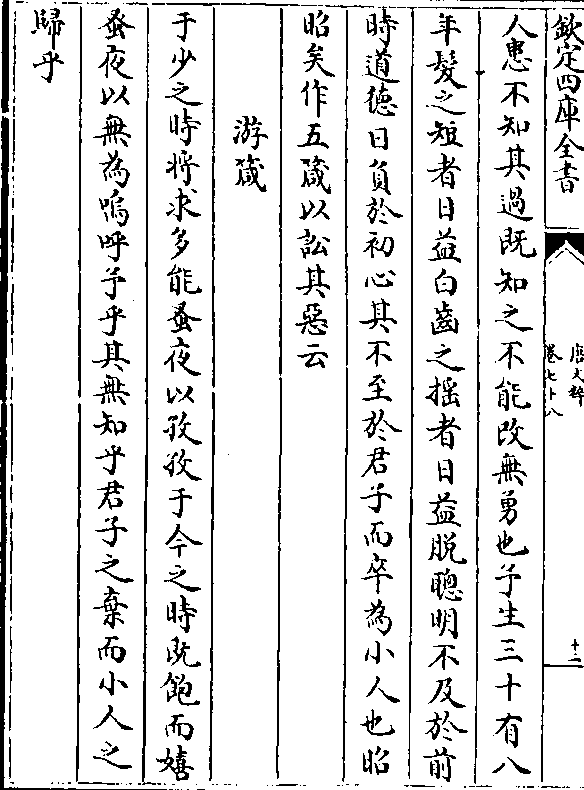 欽定四庫全書
唐文粹
卷七十八
十二
人患不知其過既知之不能改無勇也予生三十有八
年髮之短者日益白齒之揺者日益脱聰明不及於前
時道徳日負於初心其不至於君子而卒為小人也昭
昭矣作五箴以訟其惡云
游箴
于少之時将求多能蚤夜以孜孜于今之時既飽而嬉
蚤夜以無為嗚呼予乎其無知乎君子之棄而小人之
歸乎